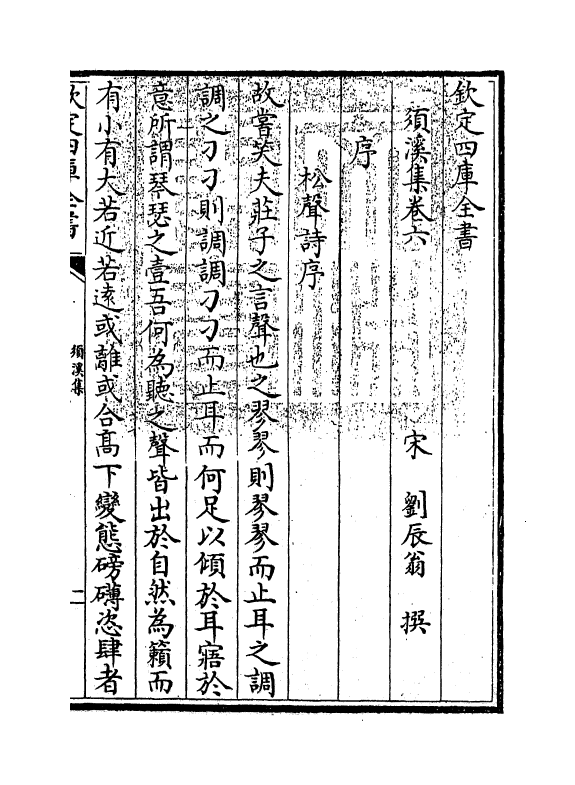 欽定四庫全書
須溪集卷六　宋　劉辰翁　撰
序
松聲詩序
故嘗笑夫莊子之言聲也之翏翏則翏翏而止耳之調
調之刁刁則調調刁刁而止耳而何足以傾於耳寤於
意所謂琴瑟之壹吾何為聽之聲皆出於自然為籟而
有小有大若近若逺或離或合髙下變態磅礴恣肆者
欽定四庫全書
須溪集